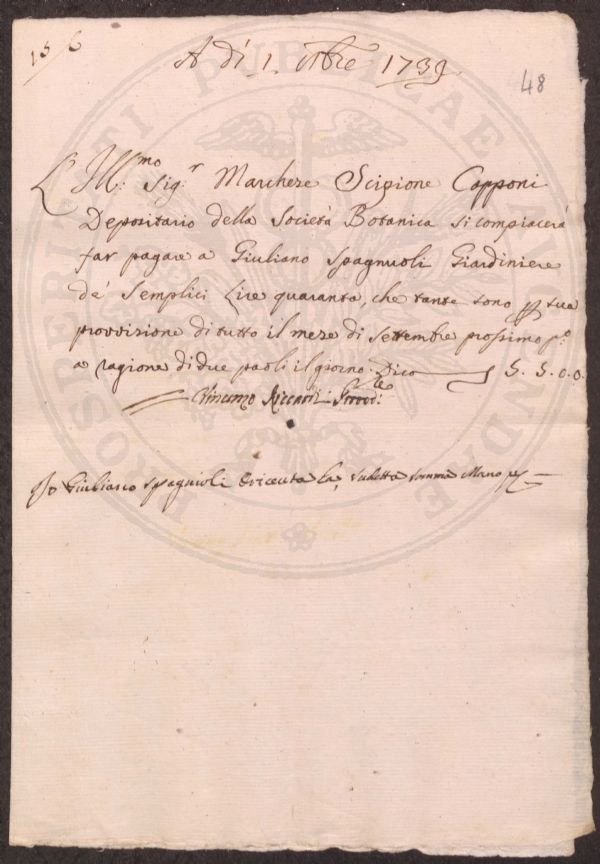 15/6
A dì 1. Obre 1739.
48
L'Ill:mo Sig:r Marchese Scipione Capponi
Depositario della Società Botanica si compiacerà
far pagare a Giuliano Spagnuoli Giardiniere
de' Semplici Lire quaranta, che tante sono p sua
provvisione di tutto il mese di Settembre prossimo p:o
a ragione di due paoli il giorno. Dico 5. 5. 0. 0.
Riccardi Provv:re
Io Giuliano Spagnioli O riceuta la sudetta somma Mano pp
PROSPERITATI PUBLICAE AUGENDAE